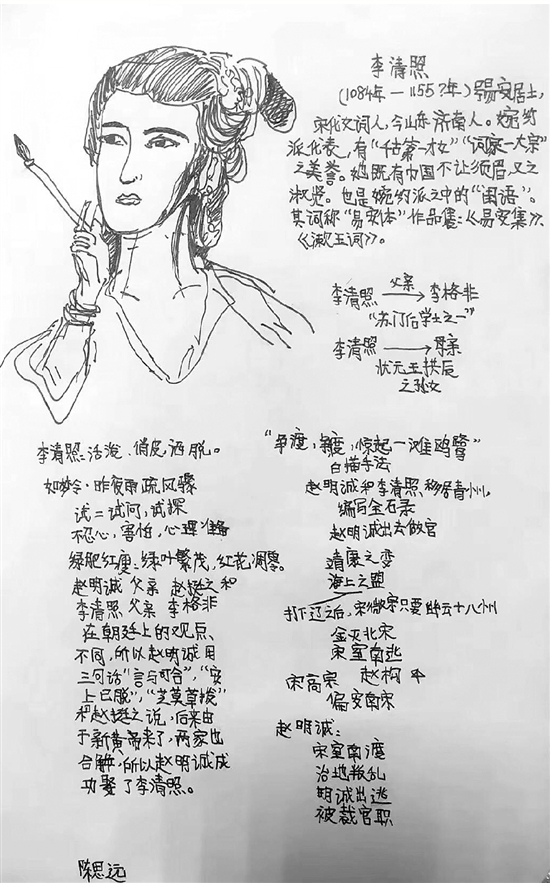 李清照
(1084年—1155?年)号易安居士,
宋代女词人,今山东济南人。婉约
派代表,有“千古第一才女”“词家一大宗”
之美誉。她既有巾帼不让须眉,又之
淑贤。也是婉约派之中的“闺语”。
其词称“易安体”作品集:《易安集》
《漱玉词》。
李清照 父亲→ 李格非
“苏门后学士之一”
李清照 → 母亲
状元王拱辰
之孙女
李清照:活泼、俏皮、洒脱。
如梦令·昨夜雨疏风骤
试=试问,试探
不忍心,害怕,心理准备
绿肥红瘦:绿叶繁茂,红花凋零。
赵明诚 父亲 赵挺之和
李清照 父亲 李格非
在朝廷上的观点、
不同,所以赵明诚用
三句话“言与司合”,“安
上已脱”,“芝芙草拔”
和赵挺之说,后来由
于新黄帝来了,两家也
合解,所以赵明诚成
功娶了李清照。
“争渡,争渡,惊起一滩鸥鹭”
白描手法
赵明诚和李清照,移居青州。
编写金石录
赵明诚出去做官
靖康之变
海上之盟
打下辽之后,宋徽宗只要幽云十八州
金灭北宋
宋室南逃
宋高宗 赵构
偏安南宋
赵明诚:
宋室南渡
治地叛乱
明诚出逃
被裁官职
陈思远